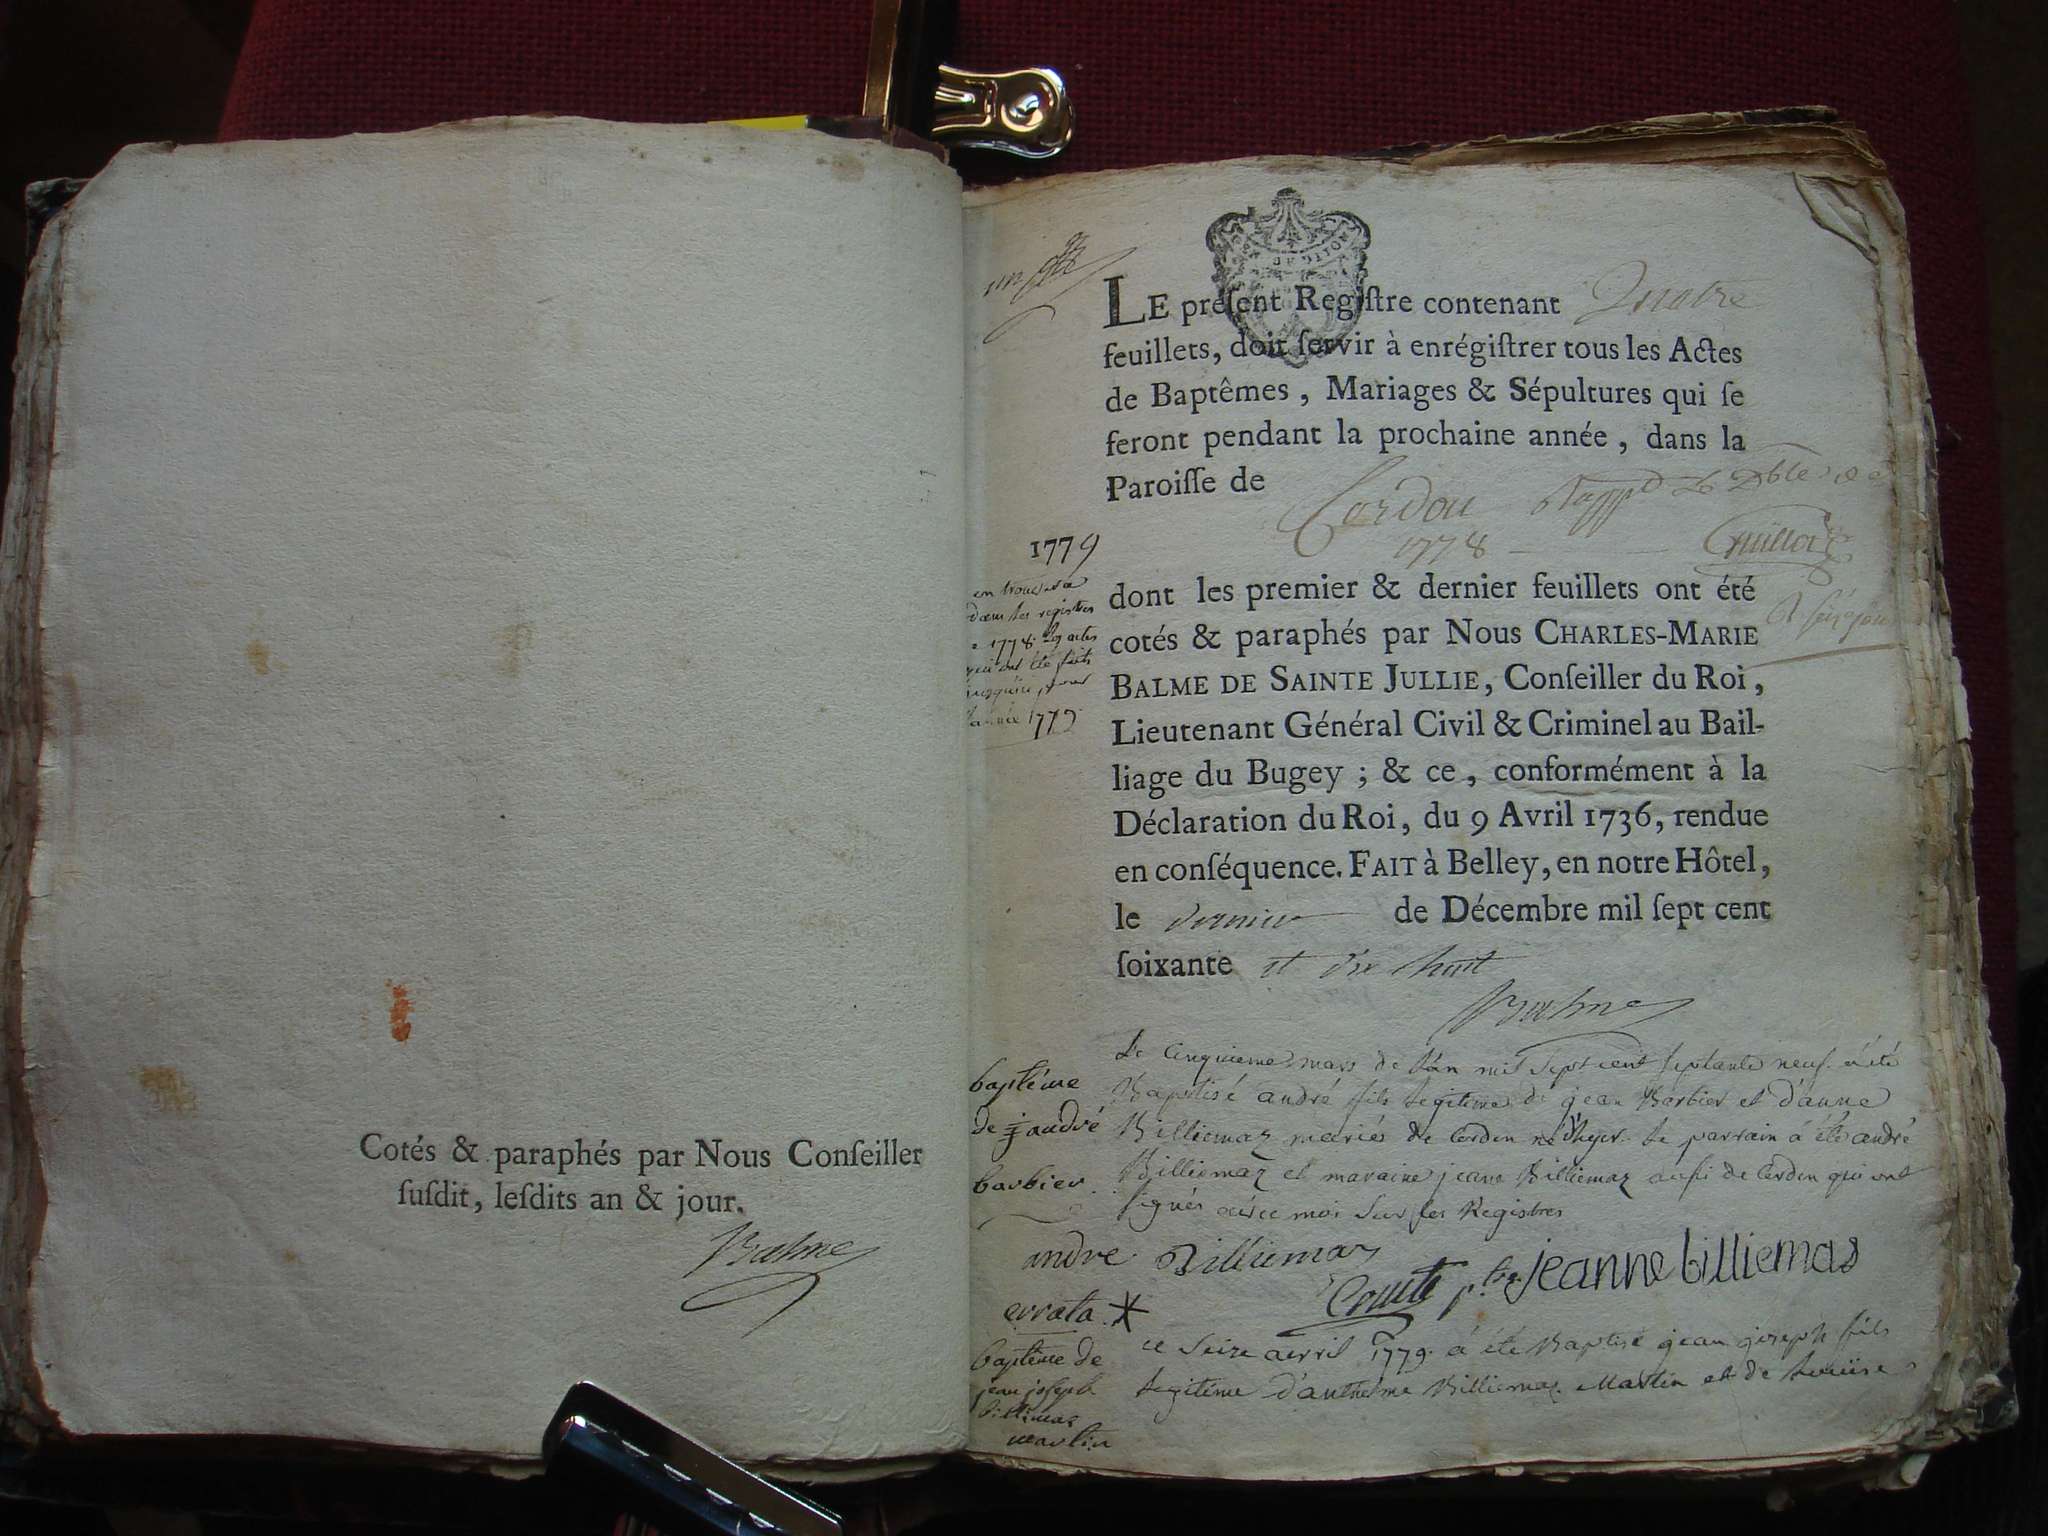 Cotés & paraphés par Nous Conſeiller
ſuſdit, leſdits an & jour.
Balme
LE préſent Regiſtre contenant Quatre
feuillets, doit ſervir à enrégiſtrer tous les Actes
de Baptêmes, Mariages & Sépultures qui ſe
feront pendant la prochaine année, dans la
Paroiſſe de
Cordon
1778
dont les premier & dernier feuillets ont été
cotés & paraphés par Nous CHARLES-MARIE
BALME DE SAINTE JULLIE, Conſeiller du Roi,
Lieutenant Général Civil & Criminel au Bail-
liage du Bugey ; & ce, conformément à la
Déclaration du Roi, du 9 Avril 1736, rendue
en conſéquence. FAIT à Belley, en notre Hôtel,
le dernier de Décembre mil ſept cent
ſoixante et dix huit
Balme
1779
en trouvera
dans les registres
1778 29 actes
qui ont été faits
pour
l'année 1779
baptême
de andré
barbier
Le cinquieme mars de l'an mil sept cent septante neuf a été
Baptisé andré fils legitime de jean Barbier et d'anne
Billiemaz mariés de Cordon né d'hyer. le parrain a été andré
Billiemaz et maraine jeane Billiemaz aussi de Cordon qui ont
signés avec moi sur les Registres
andre Billiemaz
Comte ptre jeanne billiemas
errata *
baptême de
jean joseph
billimaz
martin
ce seize avril 1779. a été Baptisé jean joseph fils
legitime d'anthelme Billiemaz Martin et de Louise